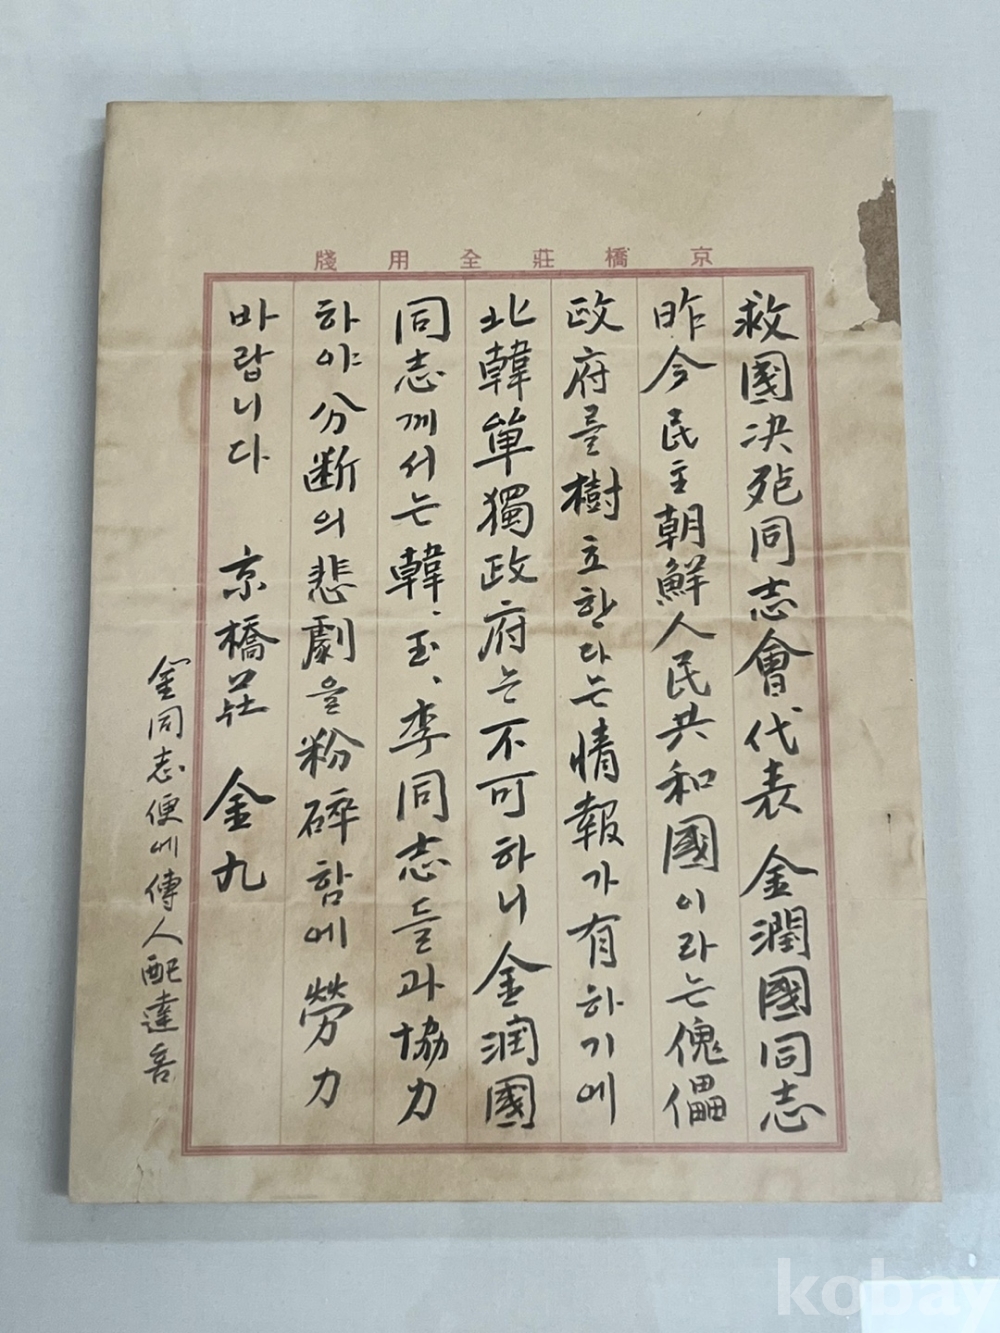 京橋莊仝用牋
救國决死同志會代表 金潤國同志
昨今民主朝鮮人民共和國이라는傀儡
政府를樹立한다는情報가有하기에
北韓單獨政府는不可하니金潤國
同志께서는韓、玉、李同志들과協力
하야分断의悲劇을粉碎함에勞力
바랍니다 京橋莊 金九
金同志便에傳人配達音
kobay